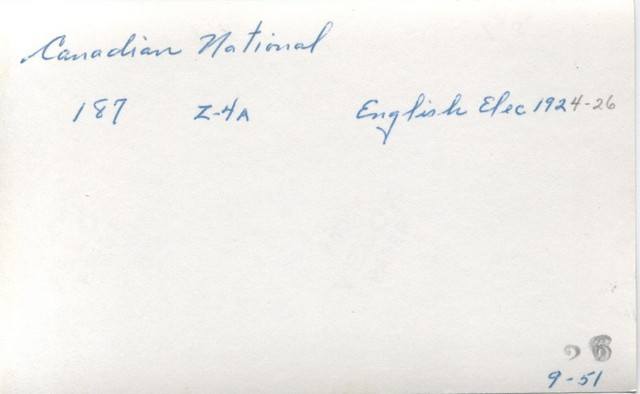 Canadian National
187 Z-4A English Elec 1924-26
9-51